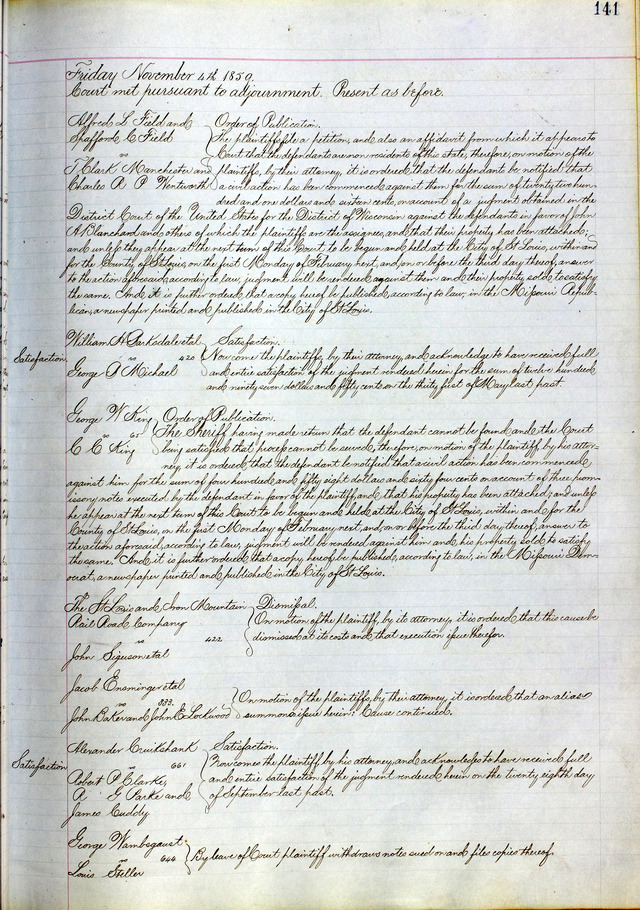 141
Friday November 4th 1859.
Court met pursuant to adjournment. Present as before.
Alfred L Field and
Spafford C Field
vs
T Clark Manchester and
Charles R P Wentworth
Order of Publication.
The plaintiffs file a petition, and also an affidavit from which it appears to
Court that the defendants are non residents of this state, therefore, on motion of the
plaintiffs, by their attorney, it is ordered that the defendants be notified that
a civil action has been commenced against them for the sum of twenty two hun-
dred and one dollars and sixteen cents, on account of a judgment obtained in the
District Court of the United State for the District of Wisconsin against the defendants in favor of John
A Blanchard and others of which the plaintiff are the assignees, and that their property has been attached;
and unless they appear at the next term of this Court to be begun and held at the City of St Louis, within and
for the County of St Louis, on the first Monday of February next, and on or before the third day thereof, answer
to the action aforesaid, according to law, judgment will be rendered against them and their property sold to satisfy
the same. And it is further ordered that a copy hereof be published, according to law, in the Missouri Repub-
lican, a newspaper printed and published in the City of St Louis.
Satisfaction
William H Barksdale et al
420
George P Michael
Satisfaction.
Now come the plaintiffs, by their attorney, and acknowledge to have received full
and entire satisfaction of the judgment rendered herein for the sum of twelve hundred
and ninety seven dollars and fifty cents on the thirty first of May last past.
George W King
vs 65
C C King
Order of Publication.
The Sheriff having made return that the defendant cannot be found and the Court
being satisfied that process cannot be served, therefore, on motion of the plaintiff, by his attor-
ney, it is ordered, that the defendant be notified that a civil action has been commenced,
against him for the sum of four hundred and fifty eight dollars and sixty four cents on account of three prom-
issory notes executed by the defendant in favor of the plaintiff, and, that his property has been attached; and unless
he appear at the next term of this Court to be begun and held at the City of St Louis, within and for the
County of St Louis, on the first Monday of February next, and, on or before the third day thereof, answer to
the action aforesaid, according to law, judgment will be rendered against him and his property sold to satisfy
the same. And it is further ordered that a copy hereof be published, according to law, in the Missouri Dem-
ocrat, a newspaper printed and published in the City of St Louis.
The St Louis and Iron Mountain
Rail Road Company
vs 422
John Sigerson et al
Dismissal.
On motion of the plaintiff, by its attorney, it is ordered that this cause be
dismissed at its costs and that execution issue therefor.
Jacob Ensminger et al
vs 333.
John Baker and John E Lockwood
On motion of the plaintiffs, by their attorney, it is ordered that an alias
summons issue herein: Cause continued.
Satisfaction
Alexander Cruikshank
vs 661
Robert P Clarke,
R G Parke and
James Cuddy.
Satisfaction.
Now comes the plaintiff by his attorney, and acknowledges to have received full
and entire satisfaction of the judgment rendered herein on the twenty eighth day
of September last past.
George Wambsgaust
vs 644
Louis Steller
By leave of Court plaintiff withdraws notes sued on and files copies thereof.